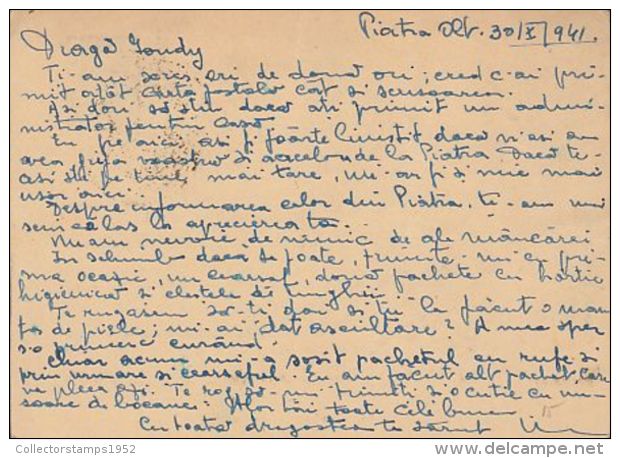 Piatra Olt. 30/X/941.
Dragă
Ti-am scris eri de două ori; cred c-ai pri-
mit atât carta postală cât si scrisoarea.
Asi dori să stiu daca ati primit un admi-
nistrator pentru casă
Eu pe aici asi fi foarte linistit daca n-asi
avea grija voastră si a celor de la Piatra Dacă te-
asi sti pe tine mai tare, mi-ar fi si mie mai
usor aici.
Despre informarea celor din Piatra, te-am
la aprecierea ta.
N-am nevoie de nimic de ale mâncărei
In schimb daca se poate, trimite-mi cu pri-
ma ocazie, un cearsaf, două pachete cu hartie
higienică si clestele de unghii.
Te rugasem să-ti faci si tu la făcut o man-
ta de piele; mi-ai dat ascultare? A mea sper
s-o primesc curând.
Chiar acum mi-a sosit pachetul cu rufe si
prin urmare si cearsaful. Eu am făcut alt pachet care
va pleca azi. Te rog să-mi trimiti si o cutie cu un-
soare de bocanci. toate cele bune
Cu toată dragostea te sărut
15
Collectorstamps1952
delcampe.net